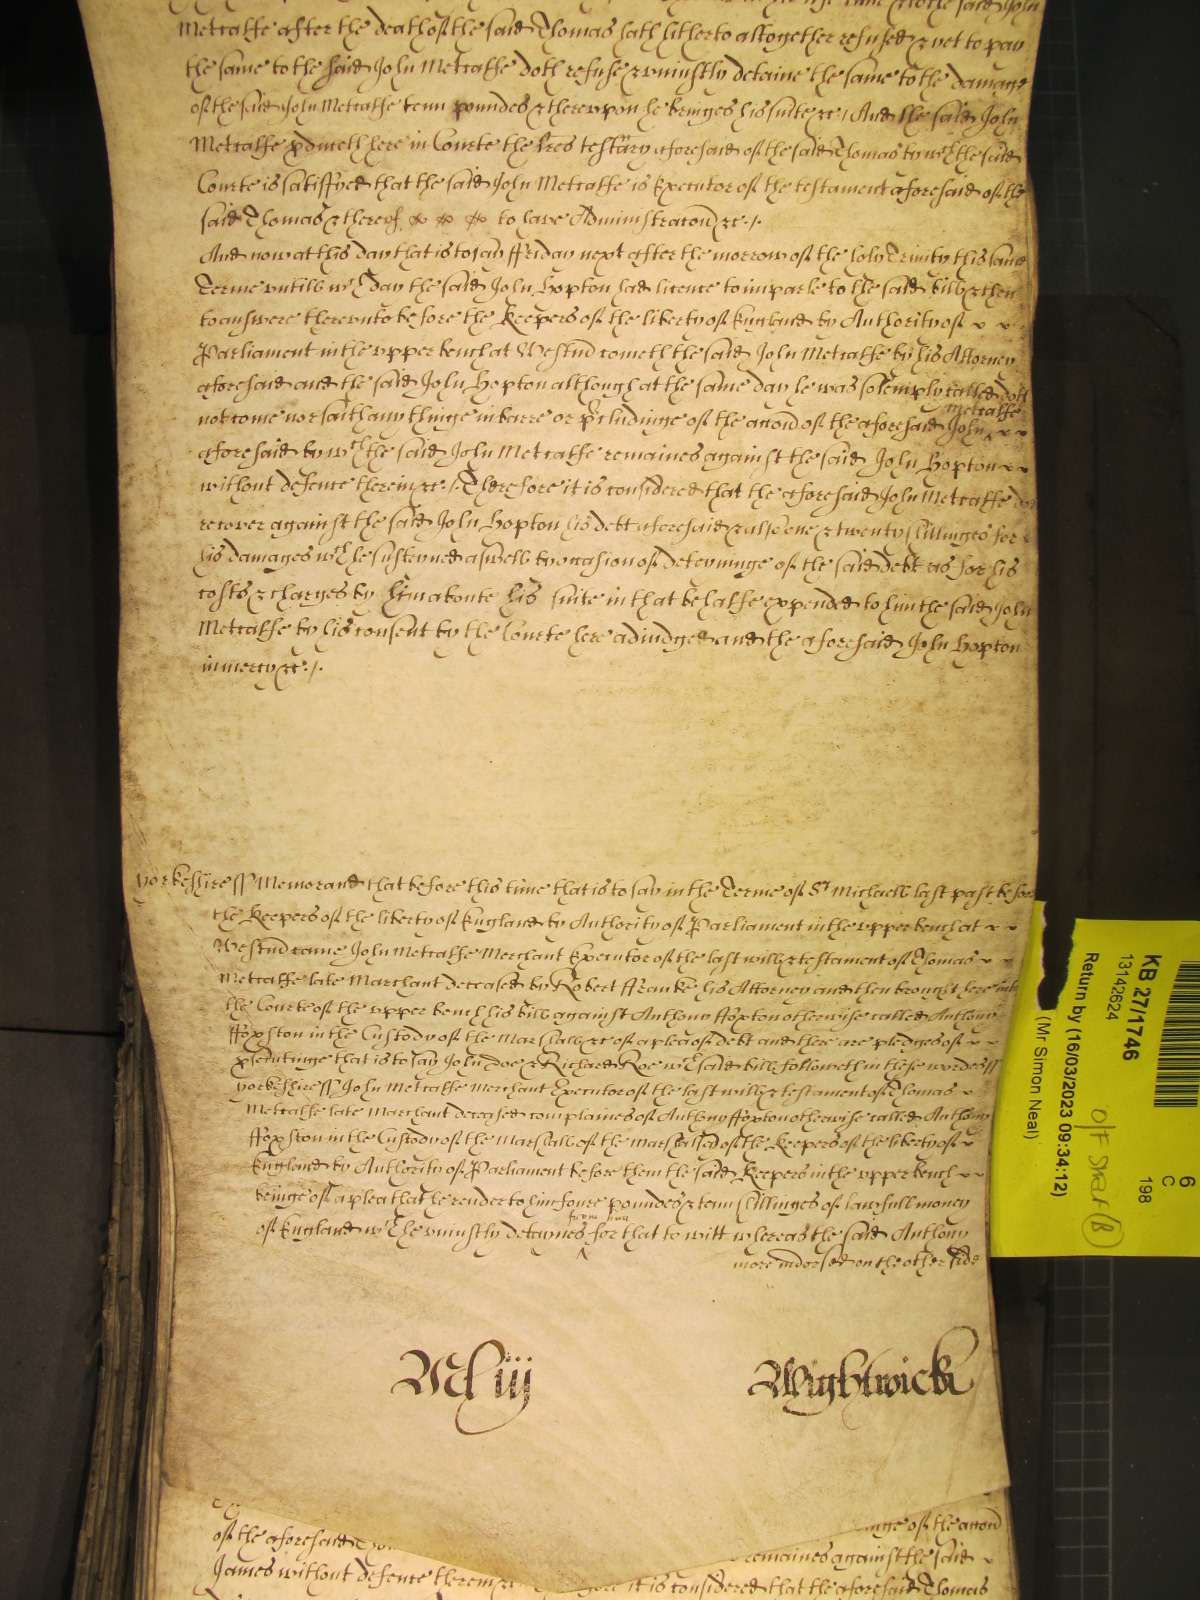 the said John
Metcalfe after the death of the said Thomas hath hitherto altogether refused & yet to pay
the same to the said John Metcalfe doth refuse & uniustly detaine the same to the damage
of the said John Metcalfe tenn poundes & thereupon he bringes his suite &c / And the said John
Metcalfe pduceth here in Courte the lres testary aforesaid of the said Thomas by wch the said
Courte is satisfyed that the said John Metcalfe is Executor of the testament aforesaid of the
said Thomas & thereof to have Administracon &c ./.
And now at this day that is to say ffriday next after the morrow of the holy Trinity this same
Terme untill wch day the said John Hopton had licence to imparle to the said bill & then
to answere thereunto before the Keepers of the liberty of England by Authority of
Parliament in the upper bench at Westmr cometh the said John Metcalfe by his Attorney
aforesaid and the said John Hopton although at the same day he was solemply called doth
not come nor saith any thinge in barre or pcludinge of the accon of the aforesaid John Metcalfe
aforesaid by wch the said John Metcalfe remaines against the said John Hopton
without defence therein &c ./. Therefore it is considered that the aforesaid John Metcalfe do
recover against the said John Hopton his debt aforesaid & alsoe one & twenty shillinges for
his damages wch he susteyned aswell by occasion of deteyninge of the said debt as for his
costs & charges by him aboute his suite in that behalfe expended to him the said John
Metcalfe by his consent by the Courte here adiudged and the aforesaid John Hopton
in mercy &c ./.
Yorkeshire ss Memorand that before this time that is to say in the Terme of St Michaell last past before
the Keepers of the liberty of England by Authority of Parliament in the upper bench at
Westmr came John Metcalfe Merchant Executor of the last will & testament of Thomas
Metcalfe late Marchant deceased by Robert ffranke his Attorney and then brought here into
the Courte of the upper bench his bill against Anthony ffoxton otherwise called Anthony
ffoxston in the Custody of the Marshall &c of a plea of debt and there are pledges of
psecutinge that is to say John Doe & Richard Roe wch said bill followeth in these wordes ss
Yorkeshire ss John Metcalfe Merchant Executor of the last will & testament of Thomas
Metcalfe late Marchant deceased complaines of Anthony ffoxton otherwise called Anthony
ffoxston in the Custody of the Marshall of the Marshalsea of the Keepers of the liberty of
England by Authority of Parliament before them the said Keepers in the upper bench
beinge of a plea that he render to him foure poundes & tenn shillinges of lawfull money
of England wch he uniustly deteynes from him for that to witt whereas the said Anthony
more indorsed on the other side
Mliij Wightwick
of the aforesaid inge of the accon
remaines against the said
James without defence therein it is considered that the aforesaid Thomas
KB 27/1746
13142624
Return by (16/03/2023 09:34:12)
(Mr Simon Neal)
6
C
198
O/F Shelf (B)